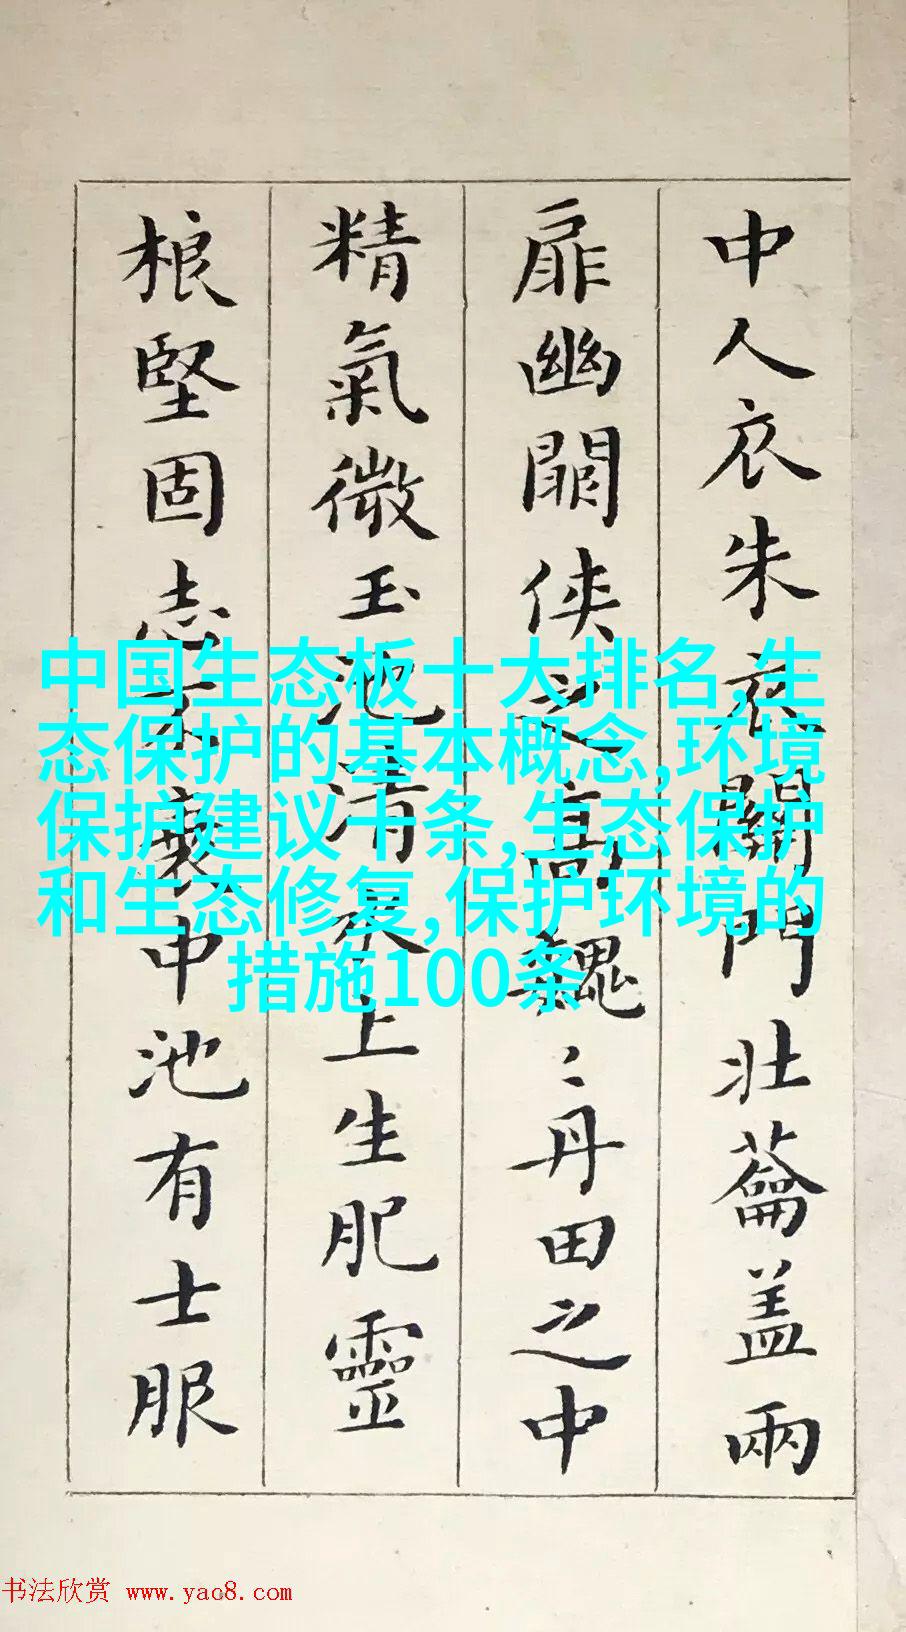 中人衣朱衣關門壯蘥盖兩
扉幽闕侠之高巍〻丹田之中
精氣微玉池清水上生肥靈
根堅固志不衰中池有士服
中国生态板十大排名,生
态保护的基本概念,环境
保护建议十条,生态保护
和生态修复,保护环境的
措施100条
书法欣赏 www.yac8.com